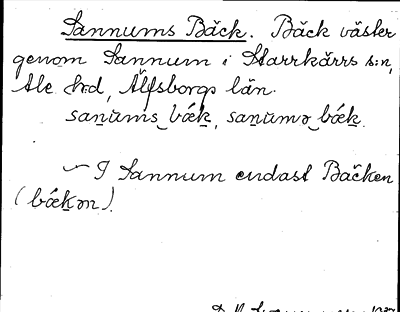 Sannums Bäck. Bäck väster
genom Sannum i Starrkärrs s:n,
Ale hrd, Älfsborgs län.
sanu̇ms_bǽk, sanu̇mə_bǽk.
— I Sannum endast Bäcken
(bǽkən).